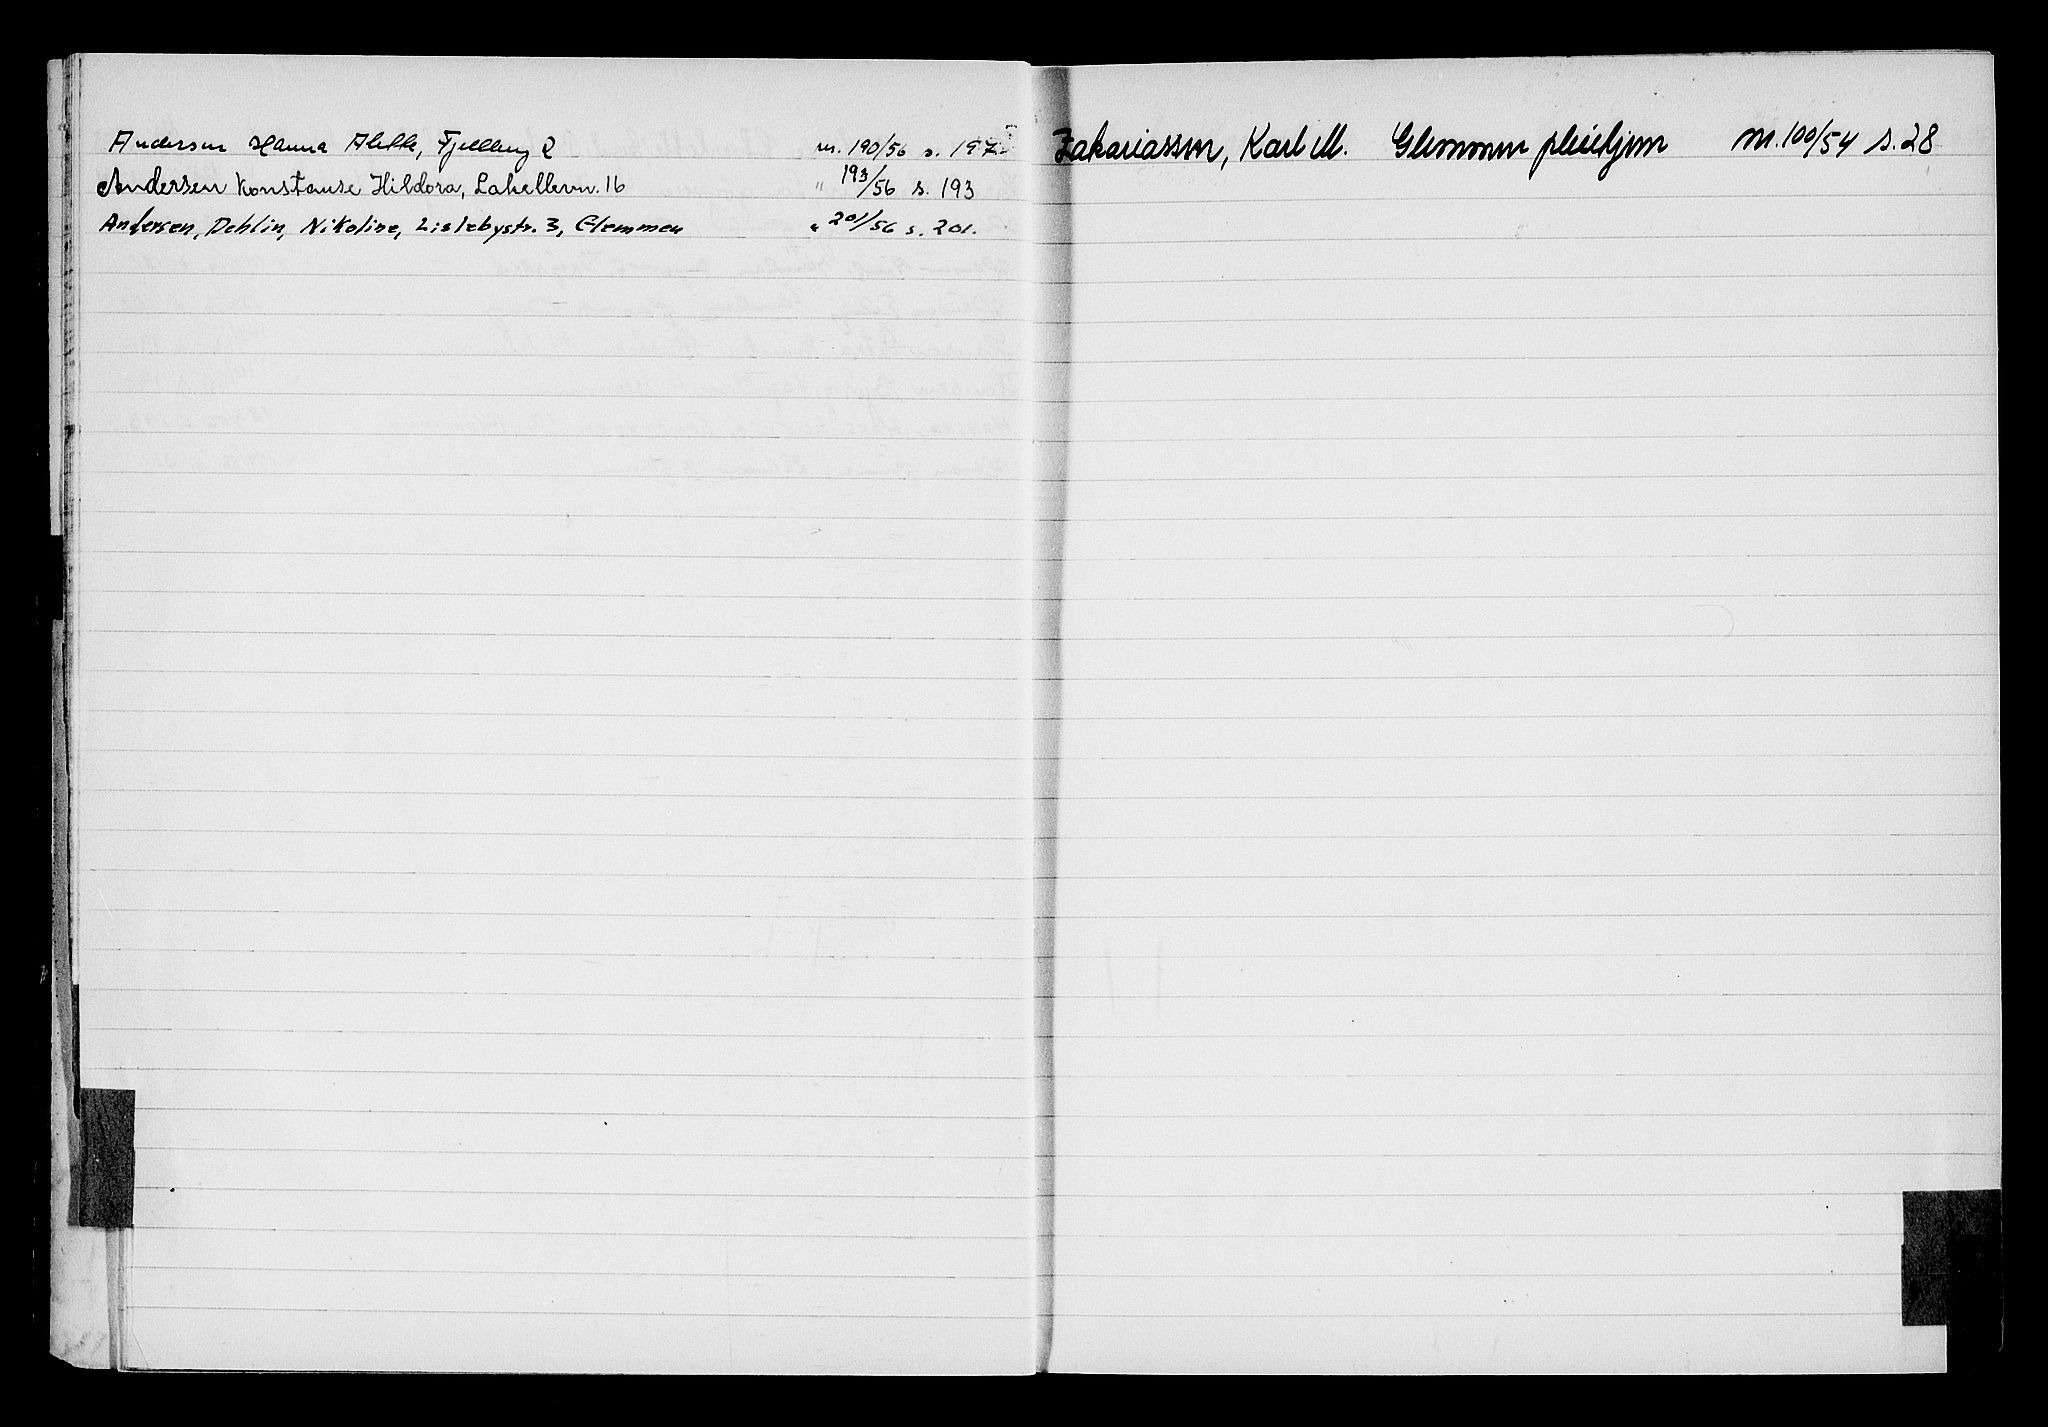 Andersen Hanna Alette, Fjellveg 2 m. 190/56 s. 197
Andersen Konstanse Hildora, Lahellevn. 16 " 193/56 s. 193
Andersen, Dehlin, Nikoline, Lislebystr. 3, Glemmen " 201/56 s. 201.
Zakariassen, Karl M. Glemmen pleiehjem m. 100/54 s. 28